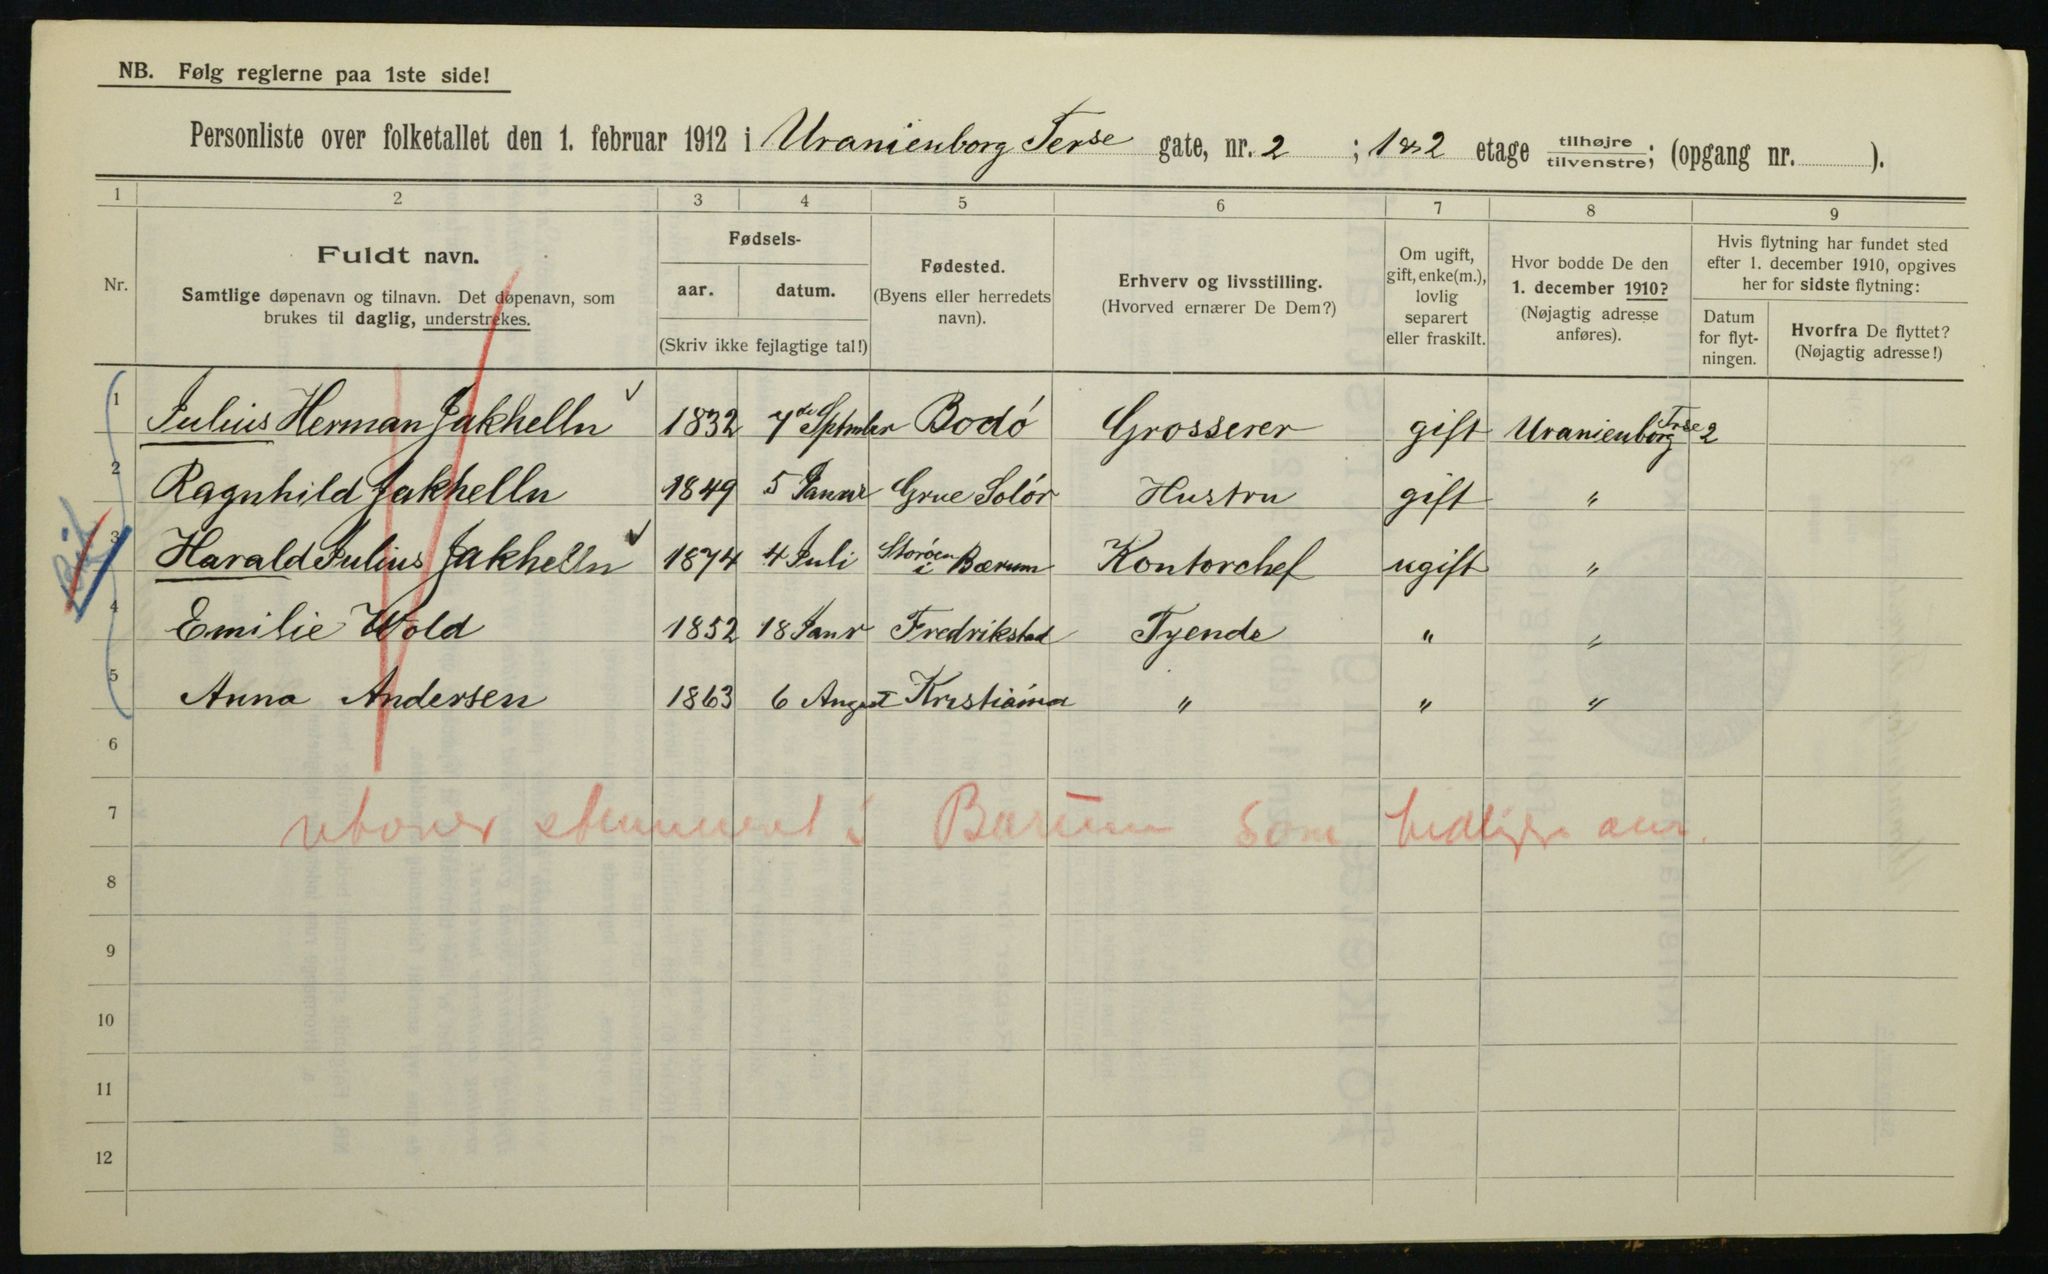 NB. Følg reglerne paa 1ste side!
Personliste over folketallet den 1. februar 1912 i Uranienborg Terse gate, nr. 2 ; 1 & 2 etage tilhøjre/tilvenstre; (opgang nr. ).
1 2 3 4 5 6 7 8 9
Nr.
Fuldt navn.
Samtlige døpenavn og tilnavn. Det døpenavn, som
brukes til daglig, understrekes.
Fødsels-
aar. datum.
(Skriv ikke fejlagtige tal!)
Fødested.
(Byens eller herredets
navn).
Erhverv og livsstilling.
(Hvorved ernærer De Dem?)
Om ugift,
gift, enke(m.),
lovlig
separert
eller fraskilt.
Hvor bodde De den
1. december 1910?
(Nøjagtig adresse
anføres).
Hvis flytning har fundet sted
efter 1. december 1910, opgives
her for sidste flytning:
Datum
for flyt-
ningen.
Hvorfra De flyttet?
(Nøjagtig adresse!)
1 Julius Herman Jakhelln 1832 7de Sptmber Bodó Grosserer gift Uranienborg Trse 2
2 Ragnhild Jakhelln 1849 5 Januar Grue Solór Hustru gift "
3 Harald Julius Jakhelln 1874 4 Juli Storöen i Bærum Kontorchef ugift "
4 Emilie Wold 1852 18 Janr Fredrikstad Tyende " "
5 Anna Andersen 1863 6 August Kristiania " " "
6
7 i Bærum som tidligere
8
9
10
11
12